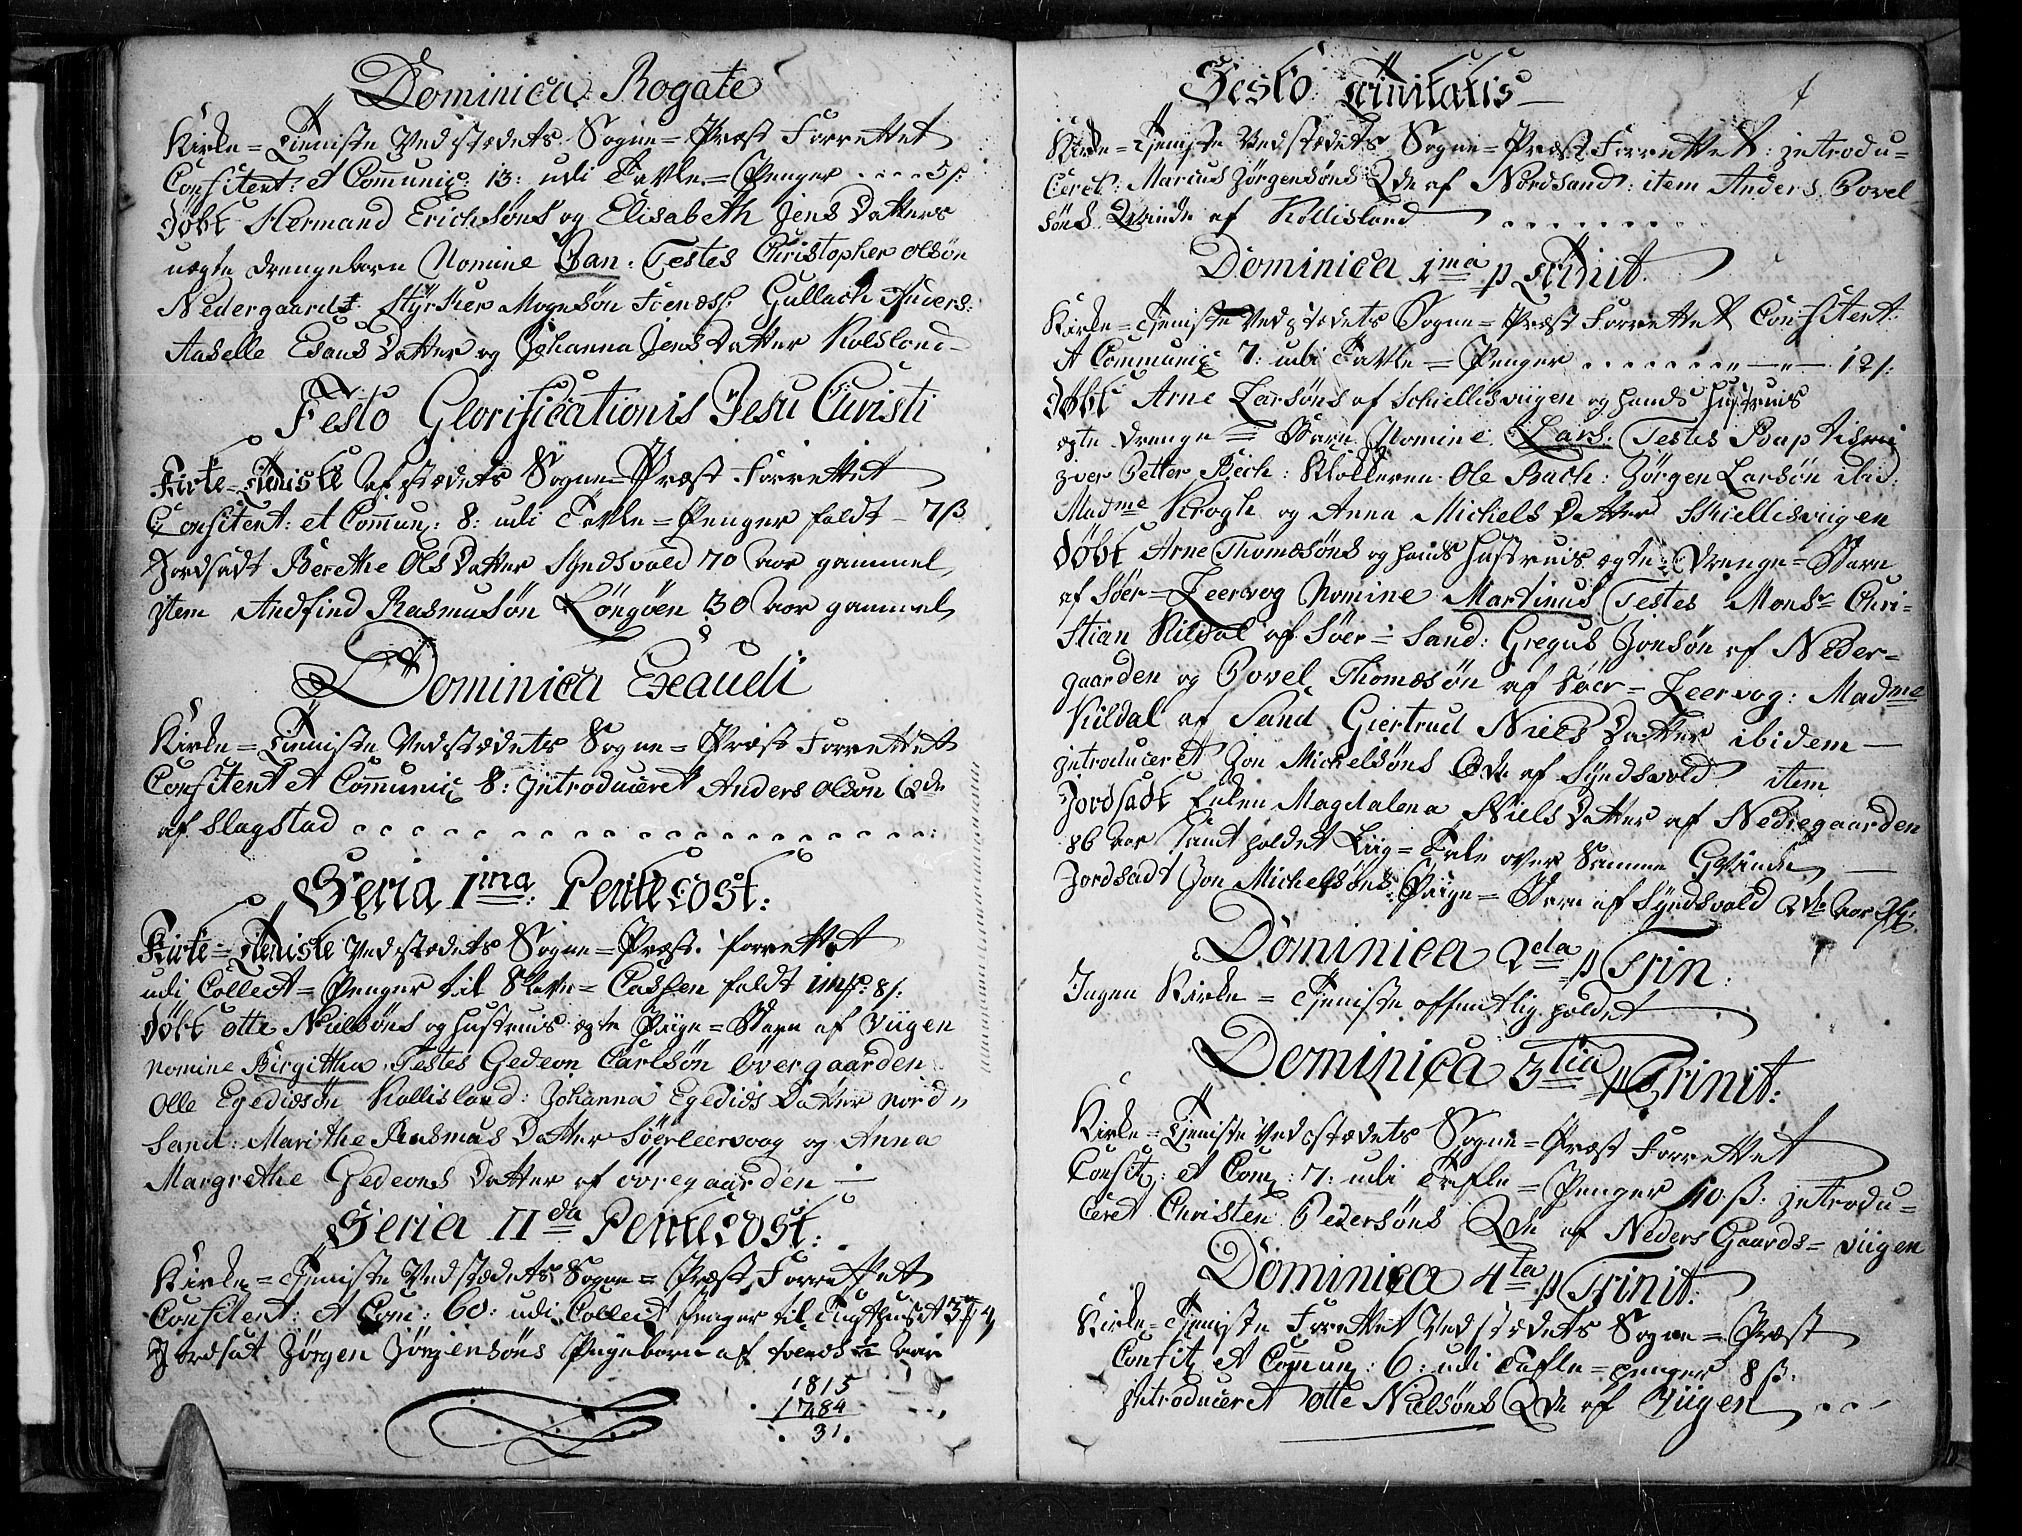 Dominica Rogate
Kirke=Tieniste Ved stædets Sogne=Præst Forrettet
Confitent: et Communic: 13: udi Tavle=Penger .... 5 s:
Døbt Hermand Erichsøns og Elisabeth Jens Datters
uægte drengebarn Nomine Dan. Testes Christopher Olsøn
Nedergaard: Styrcker Mogensøn Gullach Anders:
Esaus Datter og Johanna Jens Datter Kolsland
Festo Glorificationis Jesu Christi
Kirke=Tieniste af stædets Sogne=Præst Forrettet
Confitent: et Commun: 8: udi Tavle=Penger faldt 7 ß
Jordsadt Berethe Ols Datter Syndsvold 70 aar gammel,
item Andfind Rasmusøn Longøen 30 aar gammel,
Dominica Exaudi
Kirke=Tieniste Ved stædets Sogne=Præst Forrettet
Confitent et Communic 8: Introduceret Anders Olsøn Qde
af Slagstad
Feria 1ma: Pentecost:
Kirke=Tieniste Ved stædets Sogne=Præst. forrettet
udi Collect=Penger til Cassen faldt 8 s:
Døbt Otte Nielsøns og hustruis ægte Piige=Barn af Viigen
nomine Birgitha. Testes Gedeon Carlsøn Overgaarden
Olle Egediesøn Kollisland: Johanna Egedies Datter Nord=
sand: Marithe Rasmus Datter Søerleervaag og Anna
Margrethe Gedeons Datter af Overgaarden
Feria IIda Pentecost:
Kirke=Tieniste Ved stædets Sogne=Præst Forrettet
Confitent: et Com: 60: udi Collect Penger til Tugthuset
Jordsat Jørgen Jørgensøns Pigebarn af aar
1815
1784
31.
Festo Trinitatis
Kirke=Tieniste Ved stædets Sogne=Præst Forrettet: introdu=
ceret: Marcus Jørgensøns Qde af Nordsand: item Anders Povel
søns Qvinde af Kollisland
Dominica 1ma p Trinit.
Kirke=Tieniste Ved stædets Sogne=Præst Forrettet Confitent:
et Communic 7: udi Tavle=Penger 12 s:
Døbt Arne Larsøns af Schiellisviigen og hands Hustruis
ægte drenge=Barn Nomine Lars. Testes Baptismi
Petter Bech: Klokkeren Ole Bach: Jørgen Larsøn ibid:
Madme Krogh og Anna Michels Datter Skiellisviigen
Døbt Arne Thomesøns og hands hustruis ægte Drenge=Barn
af Søer=Leervog Nomine Martinus Testes Monsr Chri=
stian Kildal af Søer=Sand: Gregus Jonsøn af Neder=
gaarden og Povel Thomesøn af Søer=Leervog: Madme
Kildal af Sand Giertrud Niels Datter ibidem
introduceret Jon Michelsøns Qde af Syndsvold item
Jordsadt Enken Magdalena Niels Datter af Nedregaarden
86 aar samt holdet Liig=Tale over Samme Qvinde
Jordsadt Jon Michelsøns Piige=Barn af Syndsvold
Dominica 2da p Trin:
Ingen Kirke=Tieniste offentlig holdet
Dominica 3tia p Trinit:
Kirke=Tieniste Ved stædets Sogne=Præst Forrettet
Confit: et Com: 7: udi Tafle=Penger 10 ß: introdu=
ceret Christen Pedersøns Qde af Neders Gaards=viigen
Dominica 4ta p Trinit:
Kirke=Tieniste Forrettet Ved stædets Sogne=Præst
Confit et Commun: 6: udi Tafle=penger 8 ß:
Introduceret Otte Nielsøns Qde af Viigen